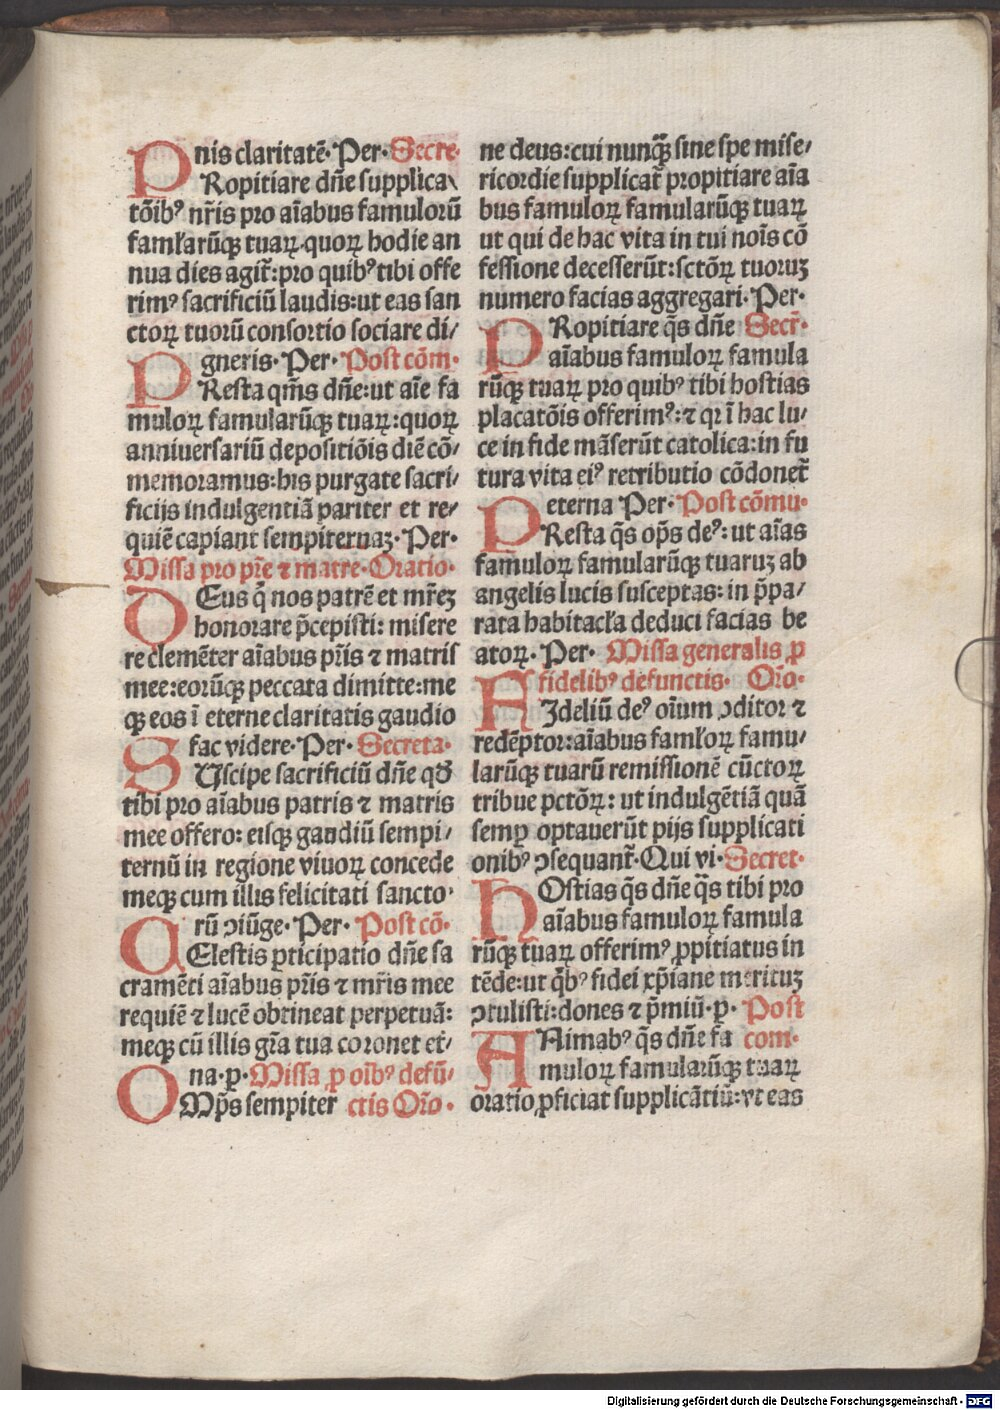 nis claritatē· Per· Secre·
PRopitiare dn̄e supplica
tōib⁹ nr̄is pro aīabus famulorū
famłarūqꝫ tuaꝝ· quoꝝ hodie an
nua dies agit̄: pro quib⁹ tibi offe
rim⁹ sacrificiū laudis: ut eas san
ctoꝝ tuorū consortio sociare di/
gneris· Per· Post cōm·
PResta qm̄s dn̄e: ut aīe fa
muloꝝ famularūqꝫ tuaꝝ: quoꝝ
anniuersariū depositiōis diē cō/
memoramus: his purgate sacri/
ficijs indulgentiā pariter et re/
quiē capiant sempiternaꝫ· Per·
Missa pro pr̄e ⁊ matre· Oratio·
DEus q̄ nos patrē et mr̄eꝫ
honorare p̄cepisti: misere
re clemēter aīabus pr̄is ⁊ matris
mee: eorūqꝫ peccata dimitte: me
qꝫ eos ī eterne claritatis gaudio
fac videre· Per· Secreta·
SUscipe sacrificiū dn̄e qđ
tibi pro aīabus patris ⁊ matris
mee offero: eisqꝫ gaudiū sempi/
ternū in regione viuoꝝ concede
meqꝫ cum illis felicitati sancto·
rū ↄiūge· Per· Post cō·
CElestis ꝑticipatio dn̄e sa
cramēti aīabus pr̄is ⁊ mr̄is mee
requiē ⁊ lucē obtineat perpetuā:
meqꝫ cū illis gr̄a tua coronet et/
na· p· Missa ꝓ oīb⁹ defū/
OMp̄s sempiter ctis Or̄o·
ne deus: cui nunqꝫ̄ sine spe mise/
ricordie supplicat̄ propitiare aīa
bus famuloꝝ famularūqꝫ tuaꝝ
ut qui de hac vita in tui noīs cō
fessione decesserūt: sctōꝝ tuoruꝫ
numero facias aggregari· Per·
PRopitiare q̄s dn̄e Secr̄·
aīabus famuloꝝ famula
rūqꝫ tuaꝝ pro quib⁹ tibi hostias
placatōis offerim⁹: ⁊ qr ī hac lu/
ce in fide māserūt catolica: in fu
tura vita ei⁹ retributio cōdonet̄
eterna Per· Post cōmu·
PResta q̄s op̄s de⁹: ut aīas
famuloꝝ famularūqꝫ tuaruꝫ ab
angelis lucis susceptas: in p̄pa/
rata habitacła deduci facias be
atoꝝ· Per· Missa generalis ꝓ
fidelib⁹ defunctis· Or̄o·
FIdeliū de⁹ oīum ↄditor ⁊
redēptor: aīabus famłoꝝ famu/
larūqꝫ tuarū remissionē cūctoꝝ
tribue pctōꝝ: ut indulgētiā quā
semꝑ optauerūt pijs supplicati
onib⁹ ↄsequant̄· Qui vi· Secret·
HOstias q̄s dn̄e q̄s tibi pro
aīabus famuloꝝ famula
rūqꝫ tuaꝝ offerim⁹ ꝓpitiatus in
tēde: ut qb̄⁹ fidei xp̄iane merituꝫ
ↄtulisti: dones ⁊ p̄miū· p· Post
ANimab⁹ q̄s dn̄e fa com·
muloꝝ famularūqꝫ tuaꝝ
oratio ꝓficiat supplicātiū: vt eas
Digitalisierung gefördert durch die Deutsche Forschungsgemeinschaft - DFG